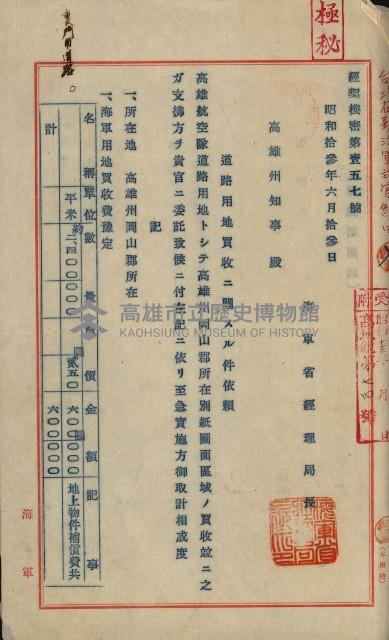 極秘
經契機密第壹五七號
昭和拾參年六月拾參日
海軍省經理局長
高雄州知事殿
道路用地買收ニ關スル件依賴
高雄航空隊道路用地トシテ高雄州岡山郡所在別紙圖面區域ノ買收竝ニ之
ガ支拂方ヲ貴官ニ委託致候ニ付左記ニ依リ至急實施方御取計相成度
記
一、所在地 高雄州岡山郡所在
一、海軍用地買收費豫定
名稱 單位 數量 單價 金額 記事
平米 約二、四〇〇〇〇〇 貳五〇 六〇〇〇〇〇 地上物件補償費共
計 六〇〇〇〇〇
東門用道路
海軍
高雄市立歷史博物館
KAOHSIUNG MUSEUM OF HISTORY